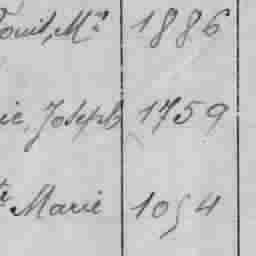 Louis, Mce 1886
ie, Joseph 1759
te Marie 1054